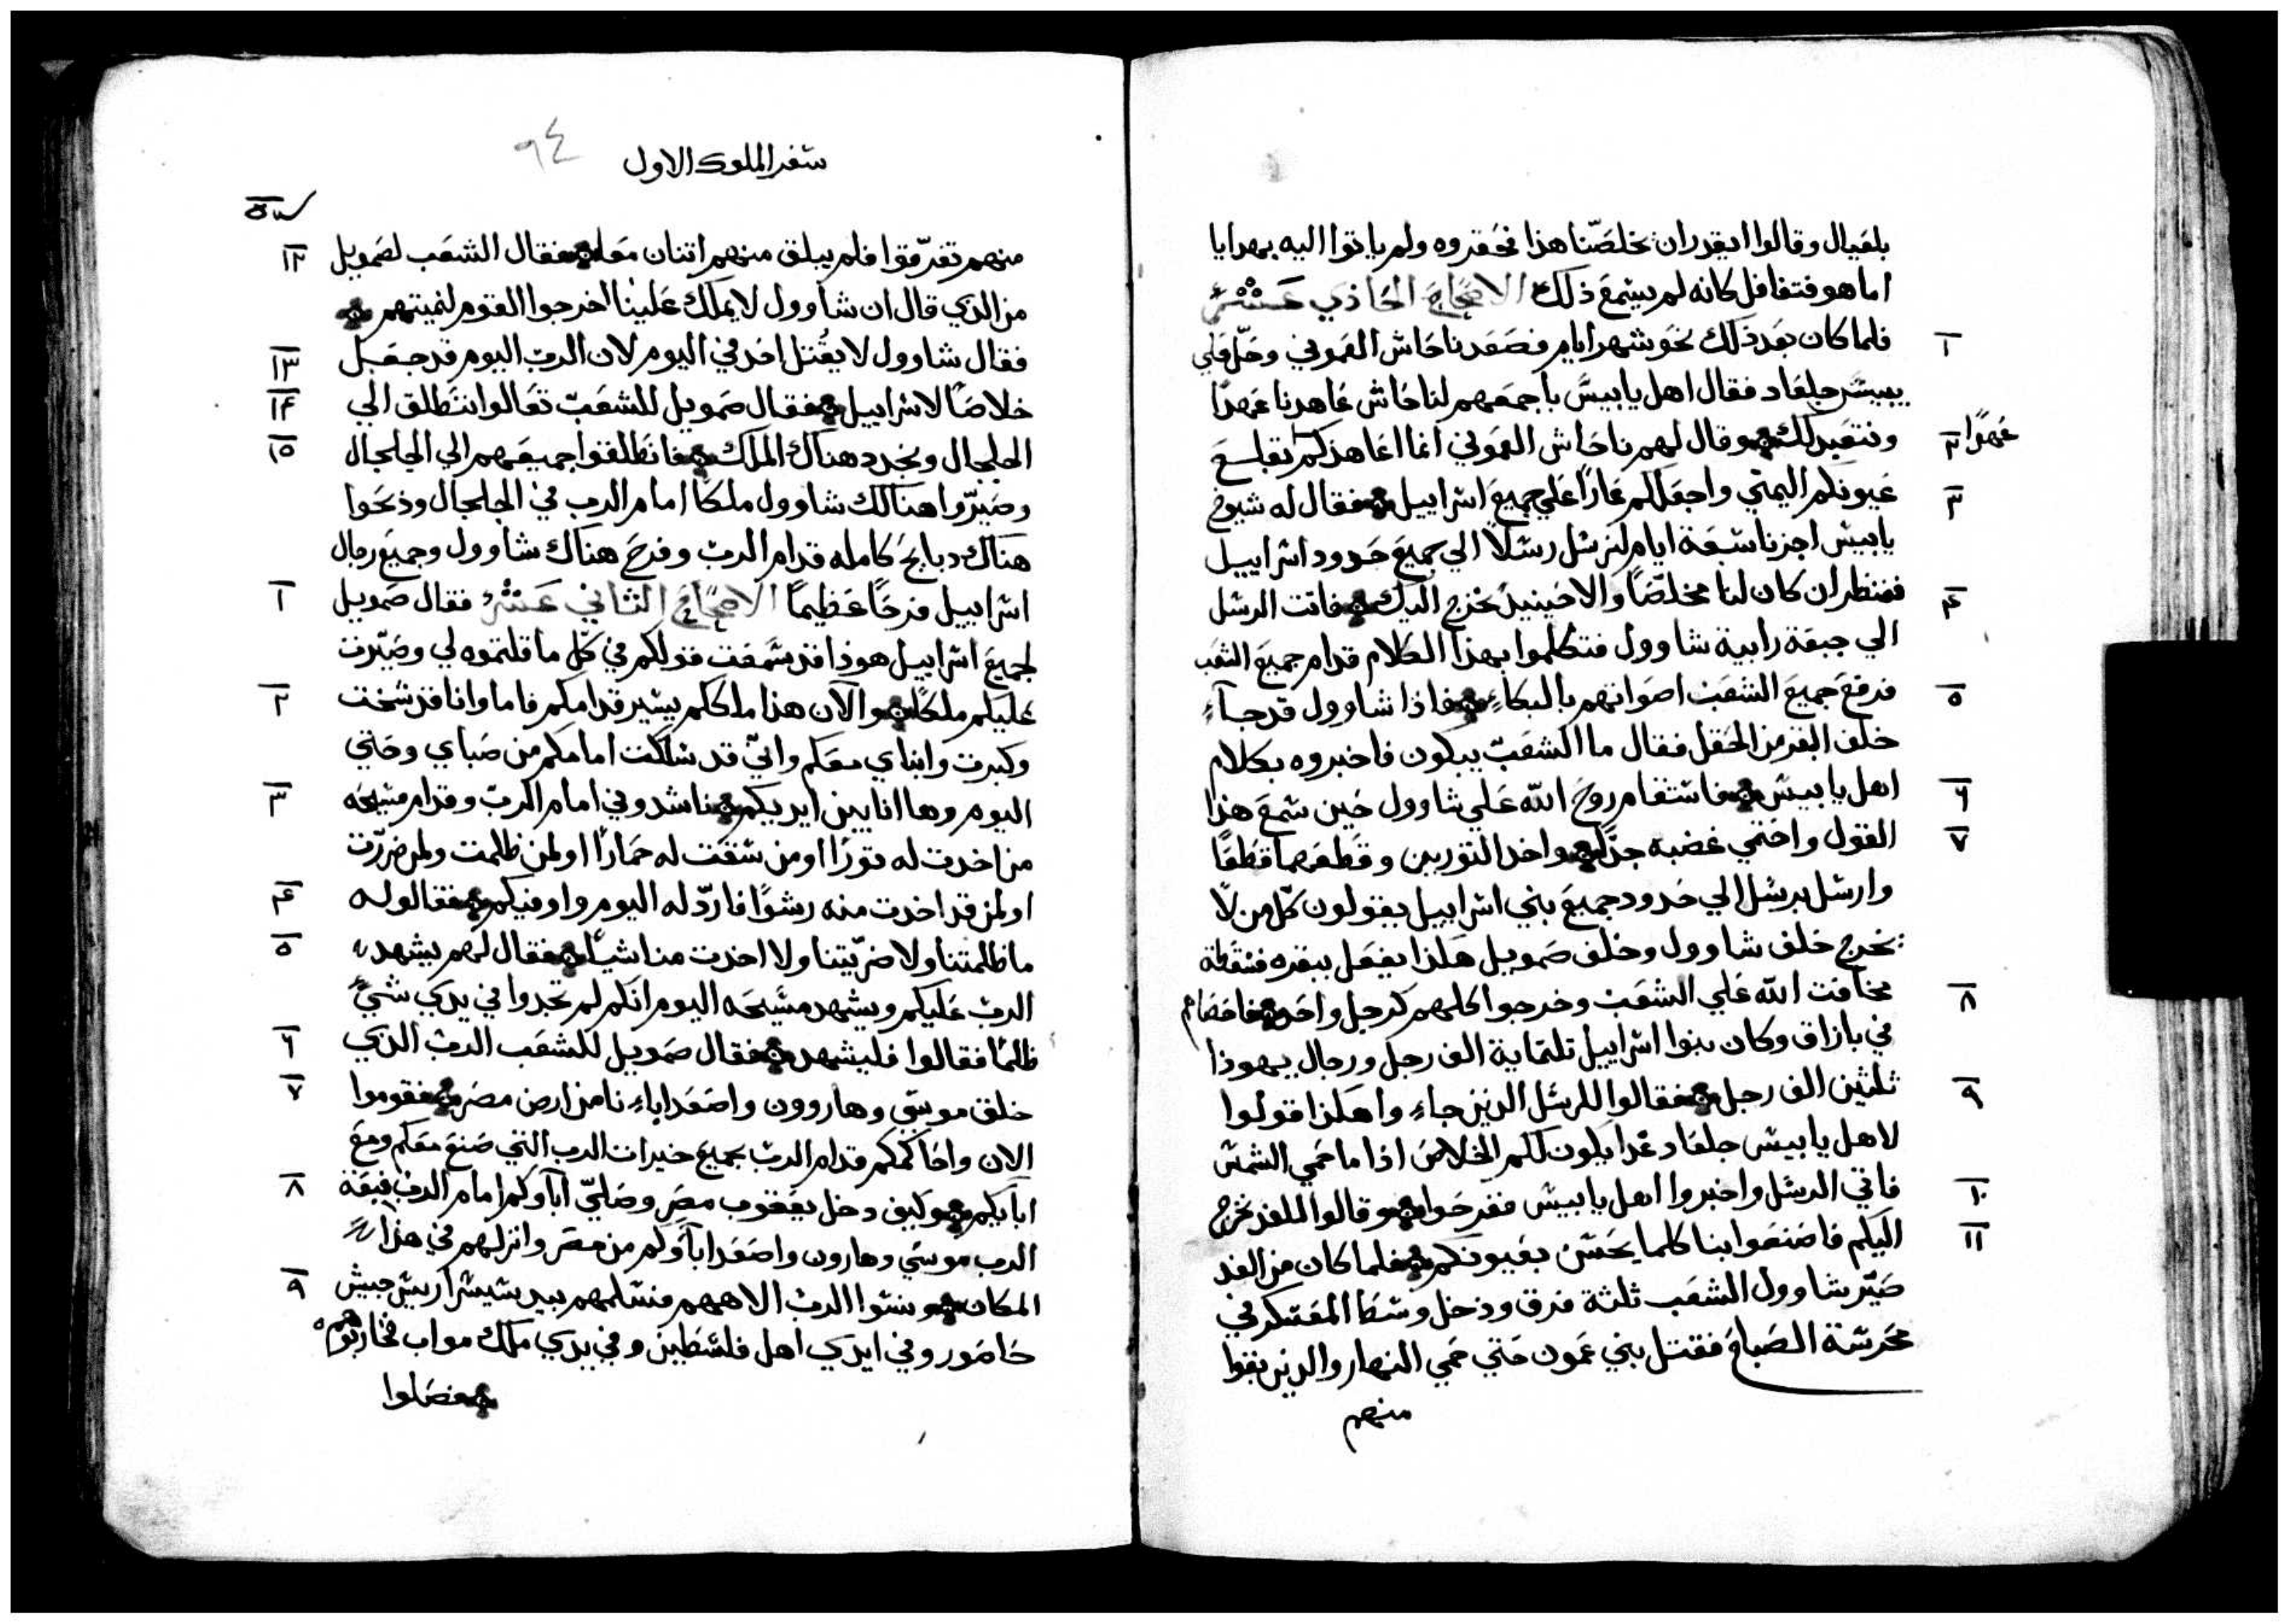 بلعيال وقالوا ايقدر ان يخلصّنا هذا نحقروه ولم ياتوا اليه بهدايا
اما هو فتغافل كانه لم يسمع ذلك الاصحاح الحادي عشر
١ فلما كان بعد ذلك نحو شهر ايام فصعد ناحاش العموني وحلّ علي
يبيس جلعاد فقال اهل يابيس باجمعهم لناحاش عاهدنا عهدًا
عهدًا ٢ ونتعبد لك وقال لهم ناحاش العموني انما اعاهدكم بقلع
٣ عيونكم اليمني واجعلكم عارًا علي جميع اسراييل فقال له شيوخ
يابيس اجزنا سبعة ايام لنرسل رسلًا الي جميع حدود اسراييل
٤ فننظر ان كان لنا مخلصًا والا حينيد نخرج اليك فاتت الرسل
الي جبعة رابية شاوول فتكلموا بهذا الكلام قدام جميع الشعب
٥ فرفع جميع الشعب اصواتهم بالبكاءِ فاذا شاوول قد جاءِ
خلف البقر من الحقل فقال ما الشعب يبكون فاخبروه بكلام
٦ اهل يابيس فاستقام روح الله علي شاوول حين سمع هذا
٧ القول واحتمي غضبه جدًا واخد التورين وقطعهما قطعًا
وارسل برسل الي حدود جميع بني اسراييل يقولون كل من لا
يخرج خلف شاوول وخلف صمويل هكذا يفعل ببقره فسقطة
٨ مخافت الله علي الشعب وخرجوا كلهم كرجل واحد فاحصاهم
في بازاق وكان بنوا اسراييل تلتماية الف رجل ورجال يهوذا
٩ ثلثين الف رجل فقالوا للرسل الدين جاءِوا هكذا قولوا
لاهل يابيس جلعاد غدا يكون لكم الخلاص اذا ما حمي الشمس
١٠ فاتي الرسل واخبروا اهل يابيس ففرحوا وقالوا للغد نخرج
١١ اليكم فاصنعوا بنا كلما يحسن بعيونكم فلما كان من الغد
صيّر شاوول الشعب ثلثة فرق ودخل وسط المعسكر في
محرسة الصباح فقتل بني عمون حتي حمي النهار والدين بقوا
منهم
سفر الملوك الاول ٩٤
١٢ منهم تفرّقوا فلم يبلق منهم اتنان معًا فقال الشعب لصمويل
من الدي قال ان شاوول لا يملك علينا اخرجوا القوم لنميتهم
١٣ فقال شاوول لا يُقتل احد في اليوم لان الرب اليوم قد جعل
١٤ خلاصًا لاسراييل فقال صمويل للشعب تعالوا ننطلق الي
١٥ الجلجال ونجدد هناك الملك فانطلقوا جميعهم الي الجلجال
وصيرّوا هنالك شاوول ملكًا امام الرب في الجلجال وذبحوا
هناك دبايح كامله قدام الرب وفرح هناك شاوول وجميع رجال
١ اسراييل فرحًا عظيمًا الاصحاح الثاني عشر فقال صمويل
لجميع اسراييل هوذا قد سمعت قولكم في كل ما قلتموه لي وصيّرت
٢ عليكم ملكًا والان هذا ملككم يسير قدامكم فاما وانا قد شخت
وكبرت وابناي معكم واني قد سلكت امامكم من صباي وحتي
٣ اليوم وها انا بين ايديكم ناشدوني امام الرب وقدام مسيحه
من اخدت له تورًا او من سقت له حمارًا او لمن ظلمت ولمن ضررّت
٤ او لمن قد اخدت منه رشوًا فاردّ له اليوم واوفيكم فقالوا له
٥ ما ظلمتنا ولا ضريّتنا ولا اخدت منا شيًا فقال لهم يشهد
الرب عليكم ويشهد مسيحه اليوم انكم لم تجدوا في يدي شيً
٦ ظلمًا فقالوا فليشهد فقال صمويل للشعب الرب الدي
٧ خلق موسي وهاروون واصعد اباءِنا من ارض مصر فقوموا
الان واحاكمكم قدام الرب بجميع خيرات الرب التي صنع معكم ومع
٨ ابايكم وكيف دخل يعقوب مصر وصليّ اباوكم امام الرب فبعة
الرب موسي وهارون واصعدا باوكم من مصر وانزلهم في هذا
٩ المكان ونسوا الرب الاههم فسلمهم بيد سيسرا ريس جيش
حاصور وفي ايدي اهل فلسطين وفي يدي ملك مواب فحاربوهم
فضلوا